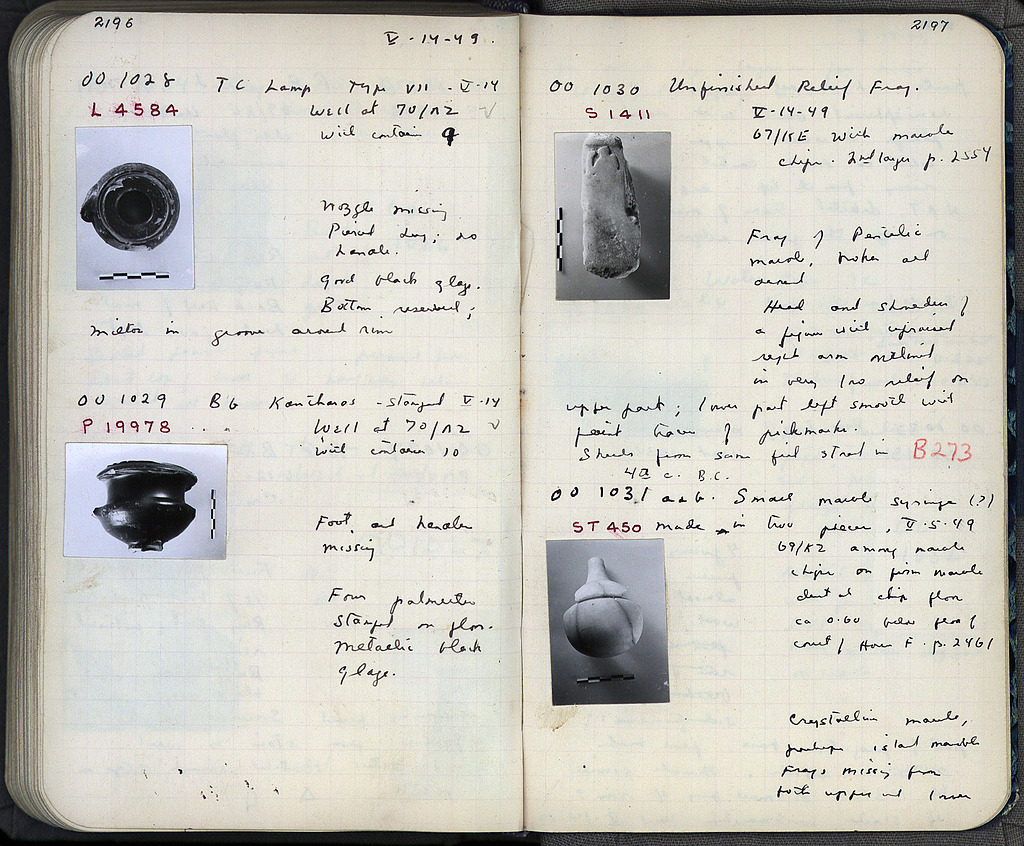 2196
V-14-49.
OO 1028 TC Lamp Type VII - V-14
L 4584 Well at 70/ΛΖ
Well container 9
Nozzle missing
Pierced lug; no
handle.
Good black glaze.
Bottom reserved;
miltos in groove around rim
OO 1029 BG Kantharos - stamped V-14
P 19978 Well at 70/ΛΖ
Well container 10
Foot, and handles
missing
Four palmettes
stamped on floor.
Metallic black
glaze.
2197
OO 1030 Unfinished Relief Frag.
S 1411 V-14-49
67/ΚΕ With marble
chips. 2nd layer p. 2554
Frag of Pentelic
marble, broken all
around
Head and shoulder of
a figure with upraised
right arm outlined
in very low relief on
upper part; lower part left smooth with
faint traces of pickmarks.
Sherds from same fill stored in B273
4th c. B.C.
OO 1031 a & b. Small marble syringe (?)
ST 450 made in two pieces, V-5-49
69/ΚΖ among marble
chips on firm marble
dust and chip floor
ca 0.60 below floor of
court of House F. p. 2461
Crystalline marble,
perhaps island marble
Frags missing from
both upper and lower